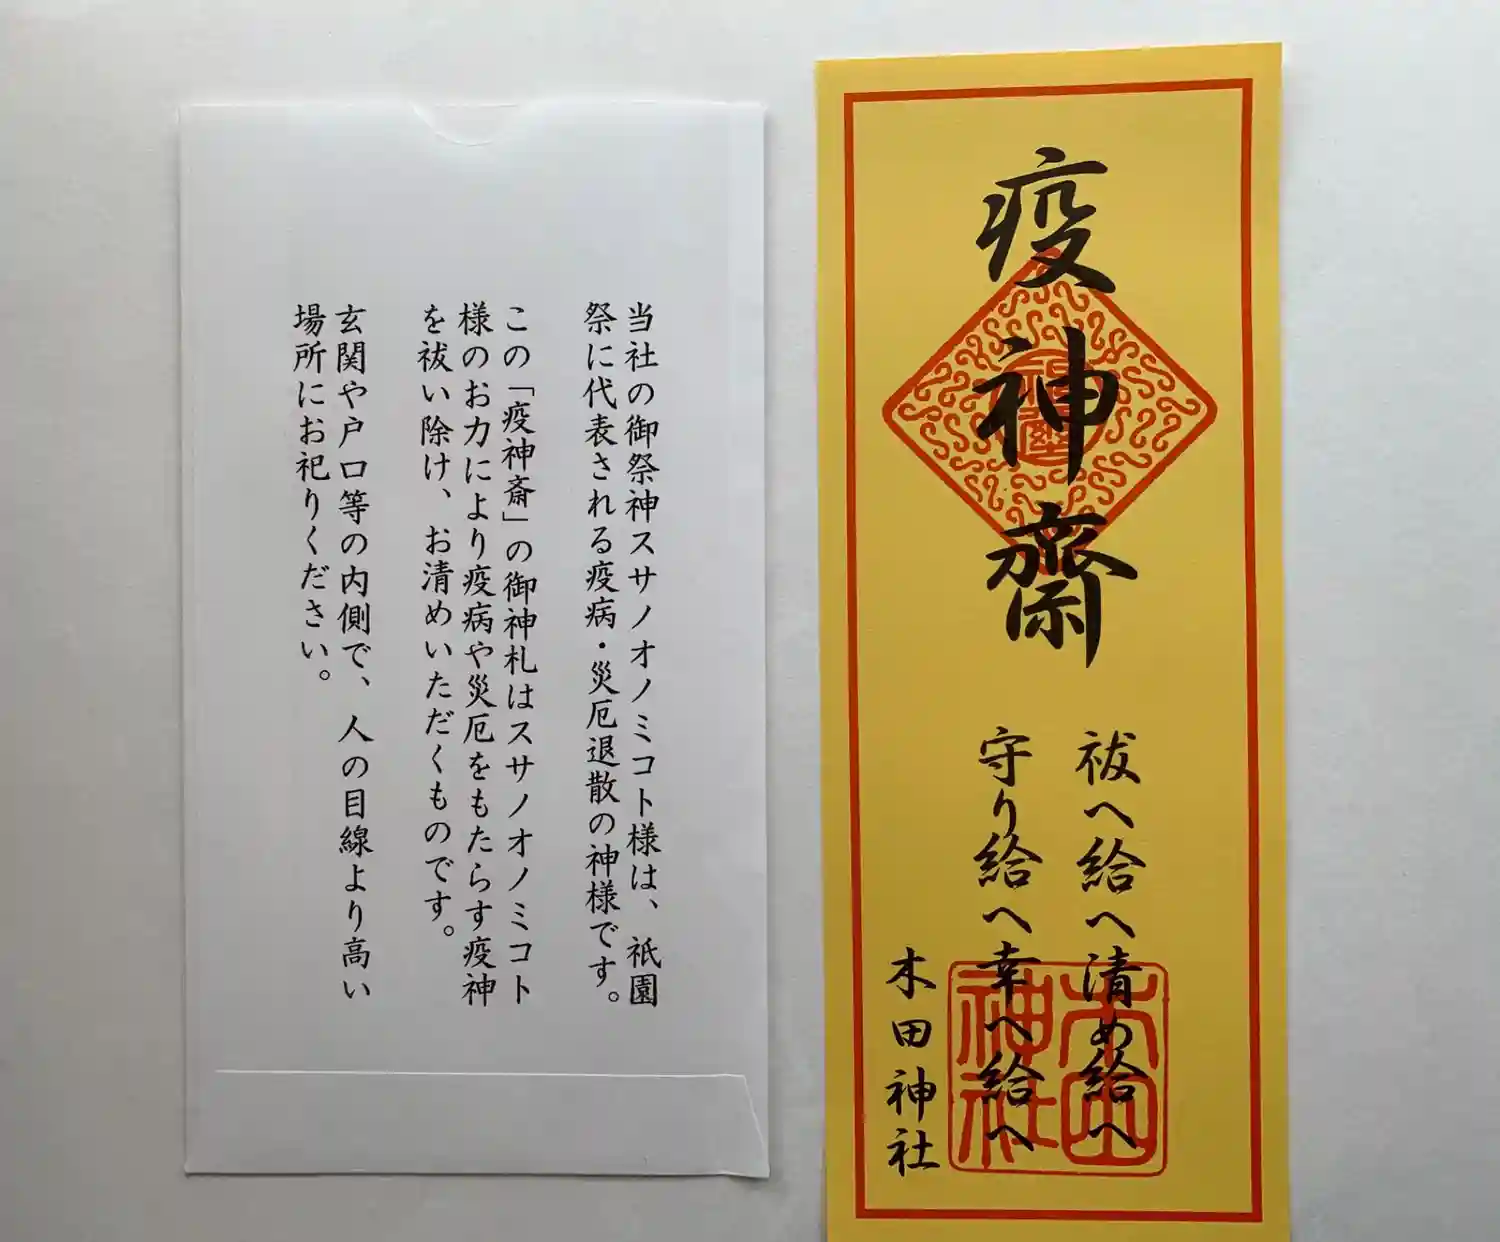 当社の御祭神スサノオノミコト様は、祇園
祭に代表される疫病・災厄退散の神様です。
この「疫神斎」の御神札はスサノオノミコト
様のお力により疫病や災厄をもたらす疫神
を祓い除け、お清めいただくものです。
玄関や戸口等の内側で、人の目線より高い
場所にお祀りください。
疫神齋
祓へ給へ清め給へ
守り給へ幸へ給へ
木田神社
木田
神社